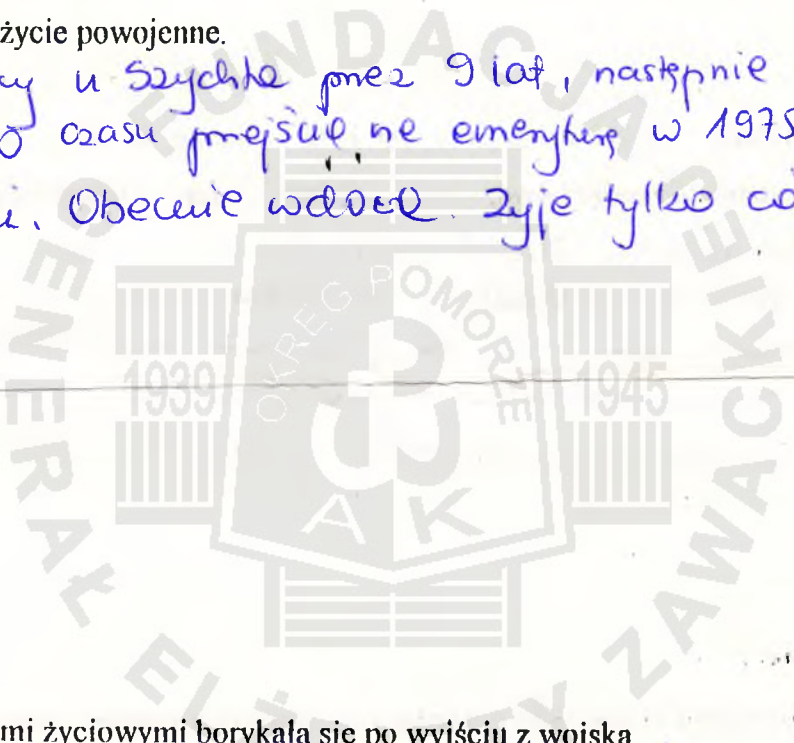 życie powojenne.
cy u Szychta przez 9 lat, następnie
czasu przejście na emeryturę w 1975
Obecnie wdowa. Żyje tylko có
FUNDACJA GENERAŁ ELŻBIETY ZAWACKIEJ
OKRĘG POMORZE
1939 1945
AK
mi życiowymi borykała się po wyjściu z wojska